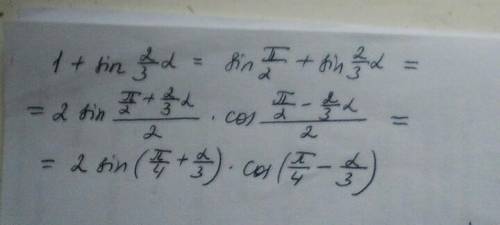 1 + sin 2/3 α = sin π/2 + sin 2/3 α =
= 2 sin (π/2 + 2/3 α)/2 · cos (π/2 - 2/3 α)/2 =
= 2 sin(π/4 + α/3) · cos(π/4 - α/3)